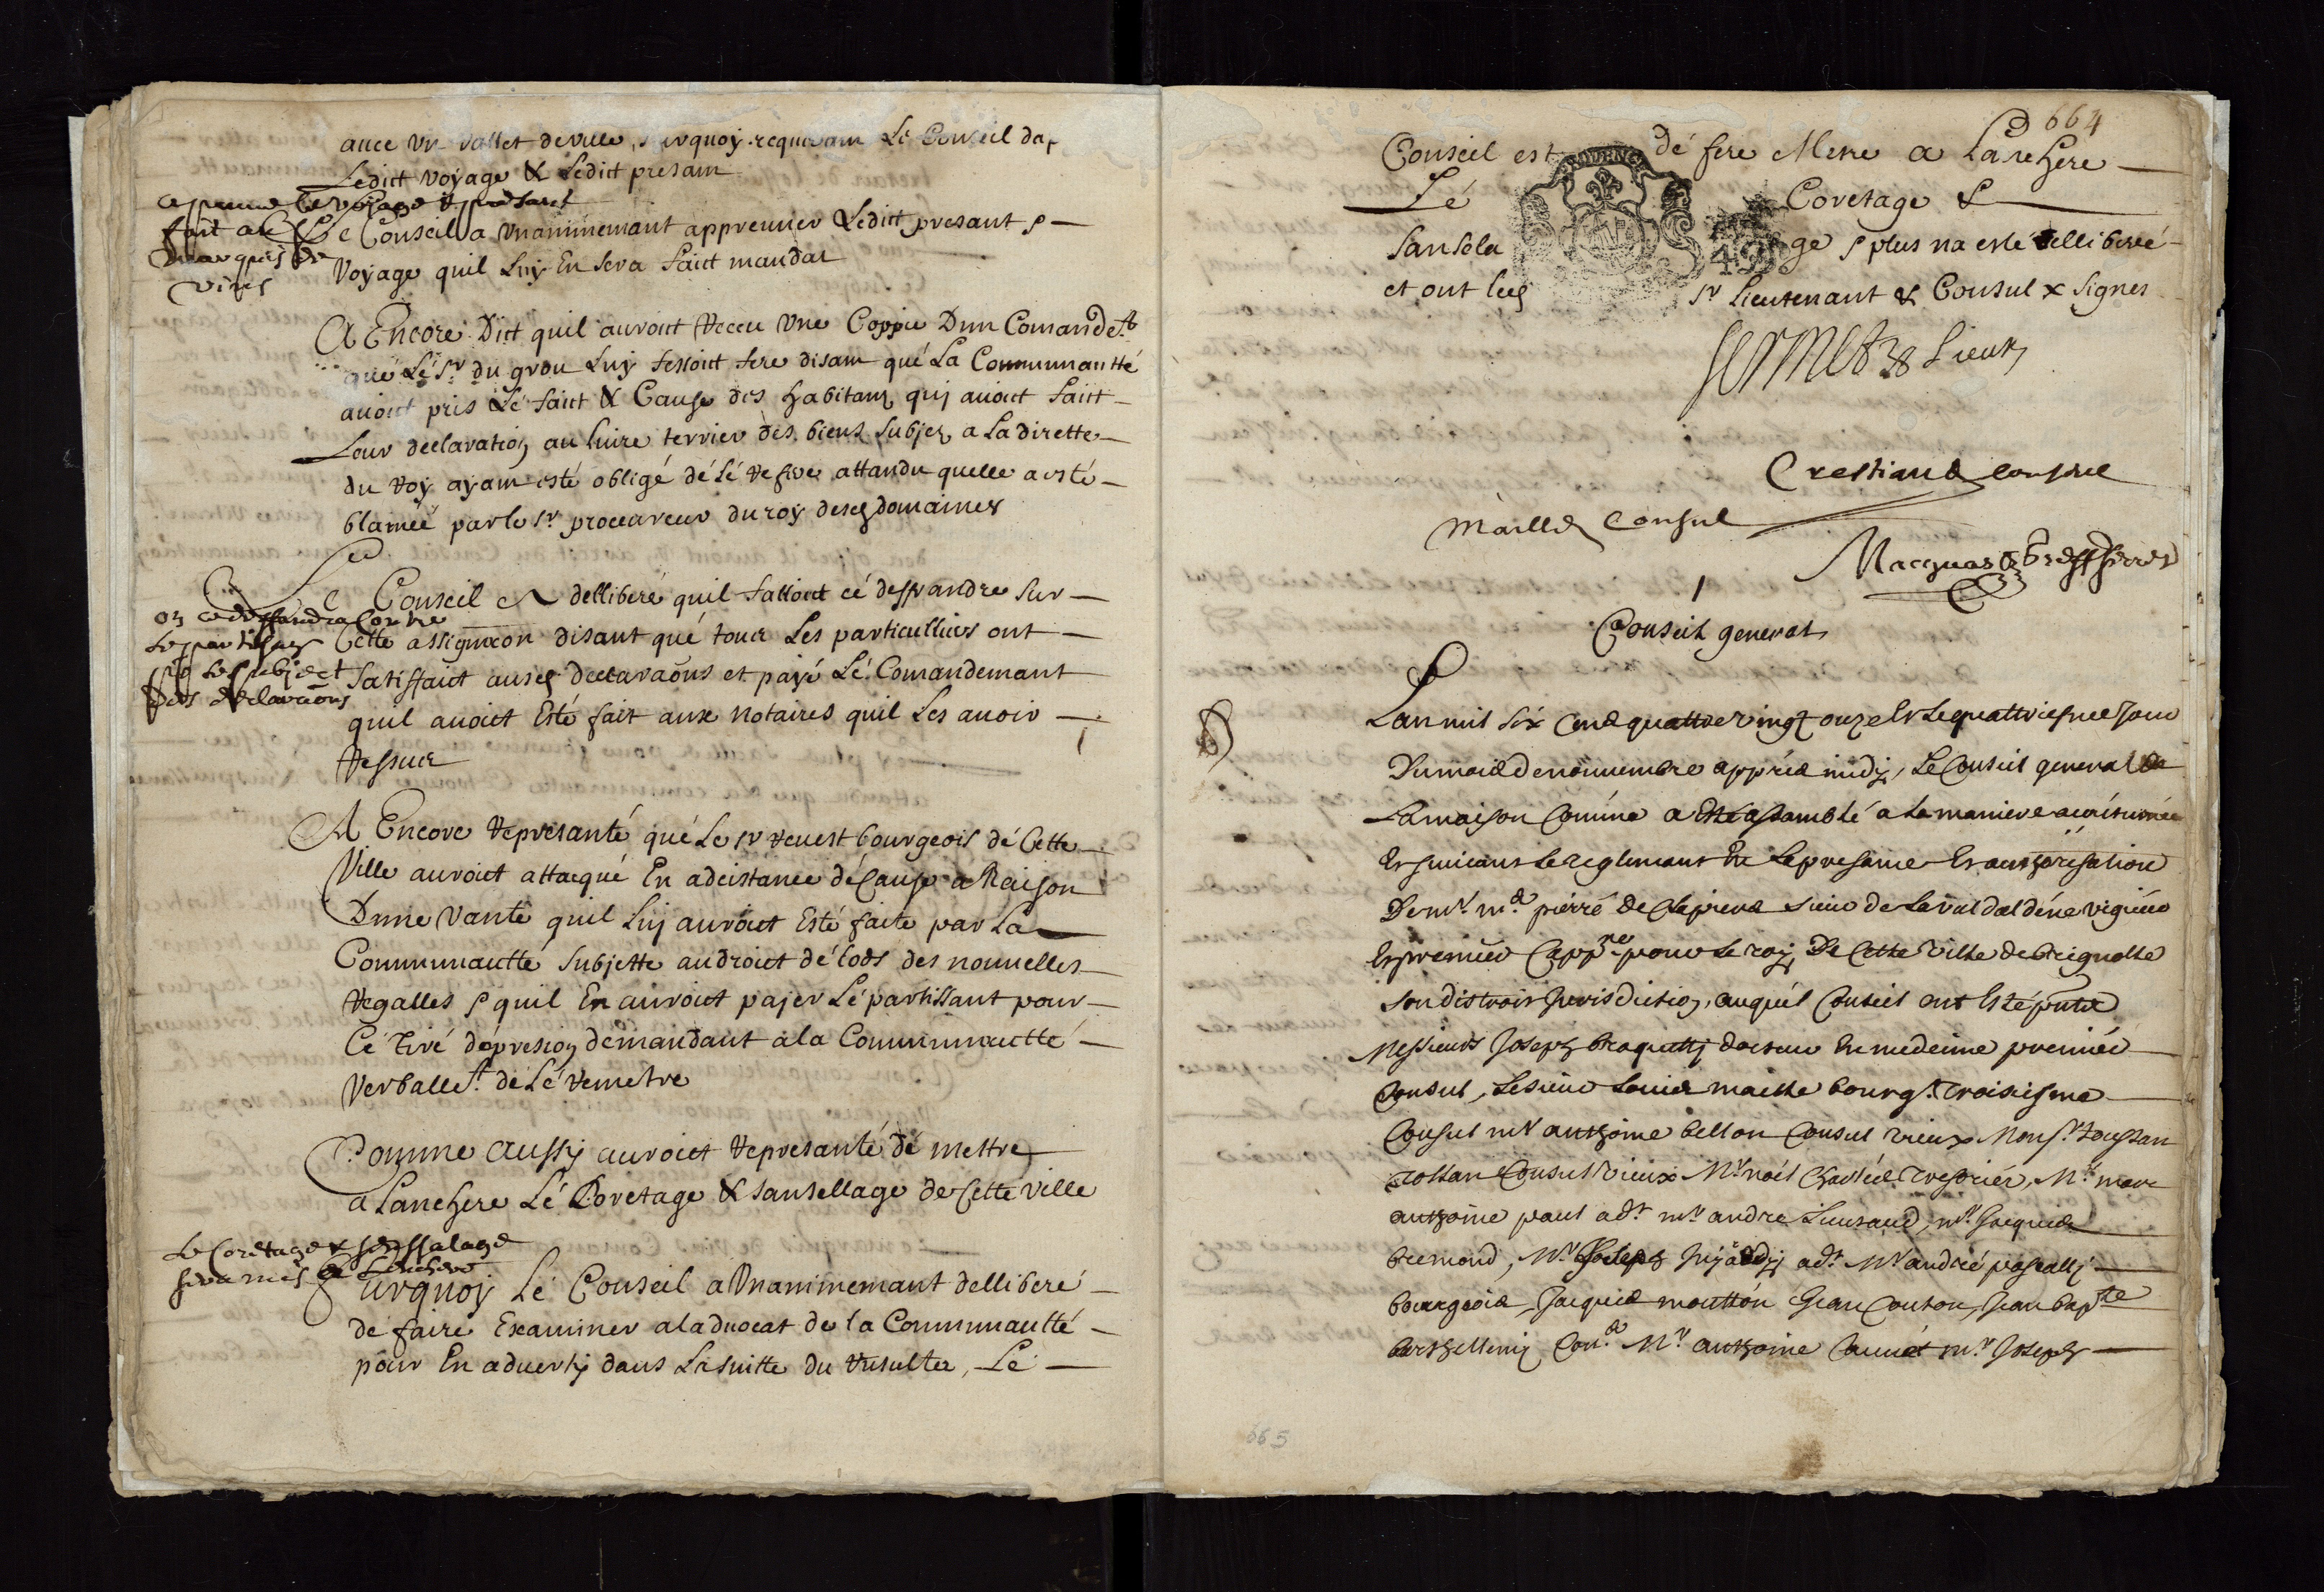 auec un vallet de ville, surquoy requerant Le Conseil dap
Ledict voyage & Ledict presant
apreuue le voyage & presant
fait a
marquis de
vins
Le Conseil a unanimemant appreuuer Ledict presant &
Voyage quil Luy En sera faict mandat
A Encore Dict quil auroict Receu Une Coppie Dun Comande.t
que Le Sr du grou Luy fessoict fere disant qué La Communautté
auoict pris Lé faict & Cause des habitans quy auoict faict
Leur declaration au liure terrier des biens subjez a La dirette
du Roy ayant esté obligé dé Lé Refere attandu quelle a esté
blamée par le Sr procureur du roy de ses domaines
Le Conseil a dellibere quil falloict cé deffandre sur
on ce deffandra Contre
Le partisan
sur Le subject
des declaraõns
Cette assignaõn disant qué tous Les particulliers ont
satisfaict auses declaraõns et payé Lé Comandemant
quil auoict Esté fait aux notaires quil Les auoir
Ressus
A Encore Represanté qué Le sr reuest bourgeois dé Cette
Ville auroict attacqué En adcistance dé Cause a Raison
Dune vante quil Luy auroict Esté faite par La
Communautté subjette audroict dé lods des nouuelles
Regalles & quil En auroict pajer Lé partissant pour
Cé tiré dópresion demandant a la Communautté
verballe.t dé Lé remetre
Comme aussy auroict Represanté dé mettre
a Lanchere Lé Coretage & sansellage de Cette ville
Le Coretage & senssalage
sera mis a Lenchere
surquoy Lé Conseil a Unanimemant delliberé
de faire Examiner a laduocat de la Communautté
pour En aduerty dans La suitte du Resulter, Lé
664
Conseil est dé fere Metre a Lanchere
Lé Coretage &
Sansela ge & plus na esté delliberé
et ont Les Sr Lieutenant & Consul x signes
Sermet Lieut
Crestiand consul
Maille Consul
Macquan Greffier
Conseil general
Lan mil six Cens quattre vingt onze Et Le quattriesme Jour
Du mois de nouuembre appres midy, Le Conseil general de
La maison Comune a Esté assamblé a La maniere acoustumée
Et suiuant Le reglemant En La presance Et authorisation
De mr m.e pierre de Clapiers sieur de Laval daldene viguier
Et premier Capp.ne pour Le roy De Cette ville de brignolle
son distroit Jurisdiction, auquel Conseil ont Esté pnts
Messieurs Joseph braquetty docteur En medecine premier
Consul, Le sieur Louis maille bourg.s troisiesme
Consul mr anthoine bellon Consul vieux Mons.r toussan
rossan Consul vieux Mr noel Chauteil tresorier, Mr marc
anthoine paul ad.t mr andre Lieutaud, mr Jacques
bremond, Mr Joseph ad.t Mr andré pascally
bourgeois, Jacques moutton Jean Couton, Jean bap.te
barthellemy Con.r Mr anthoine Mr Joseph
665